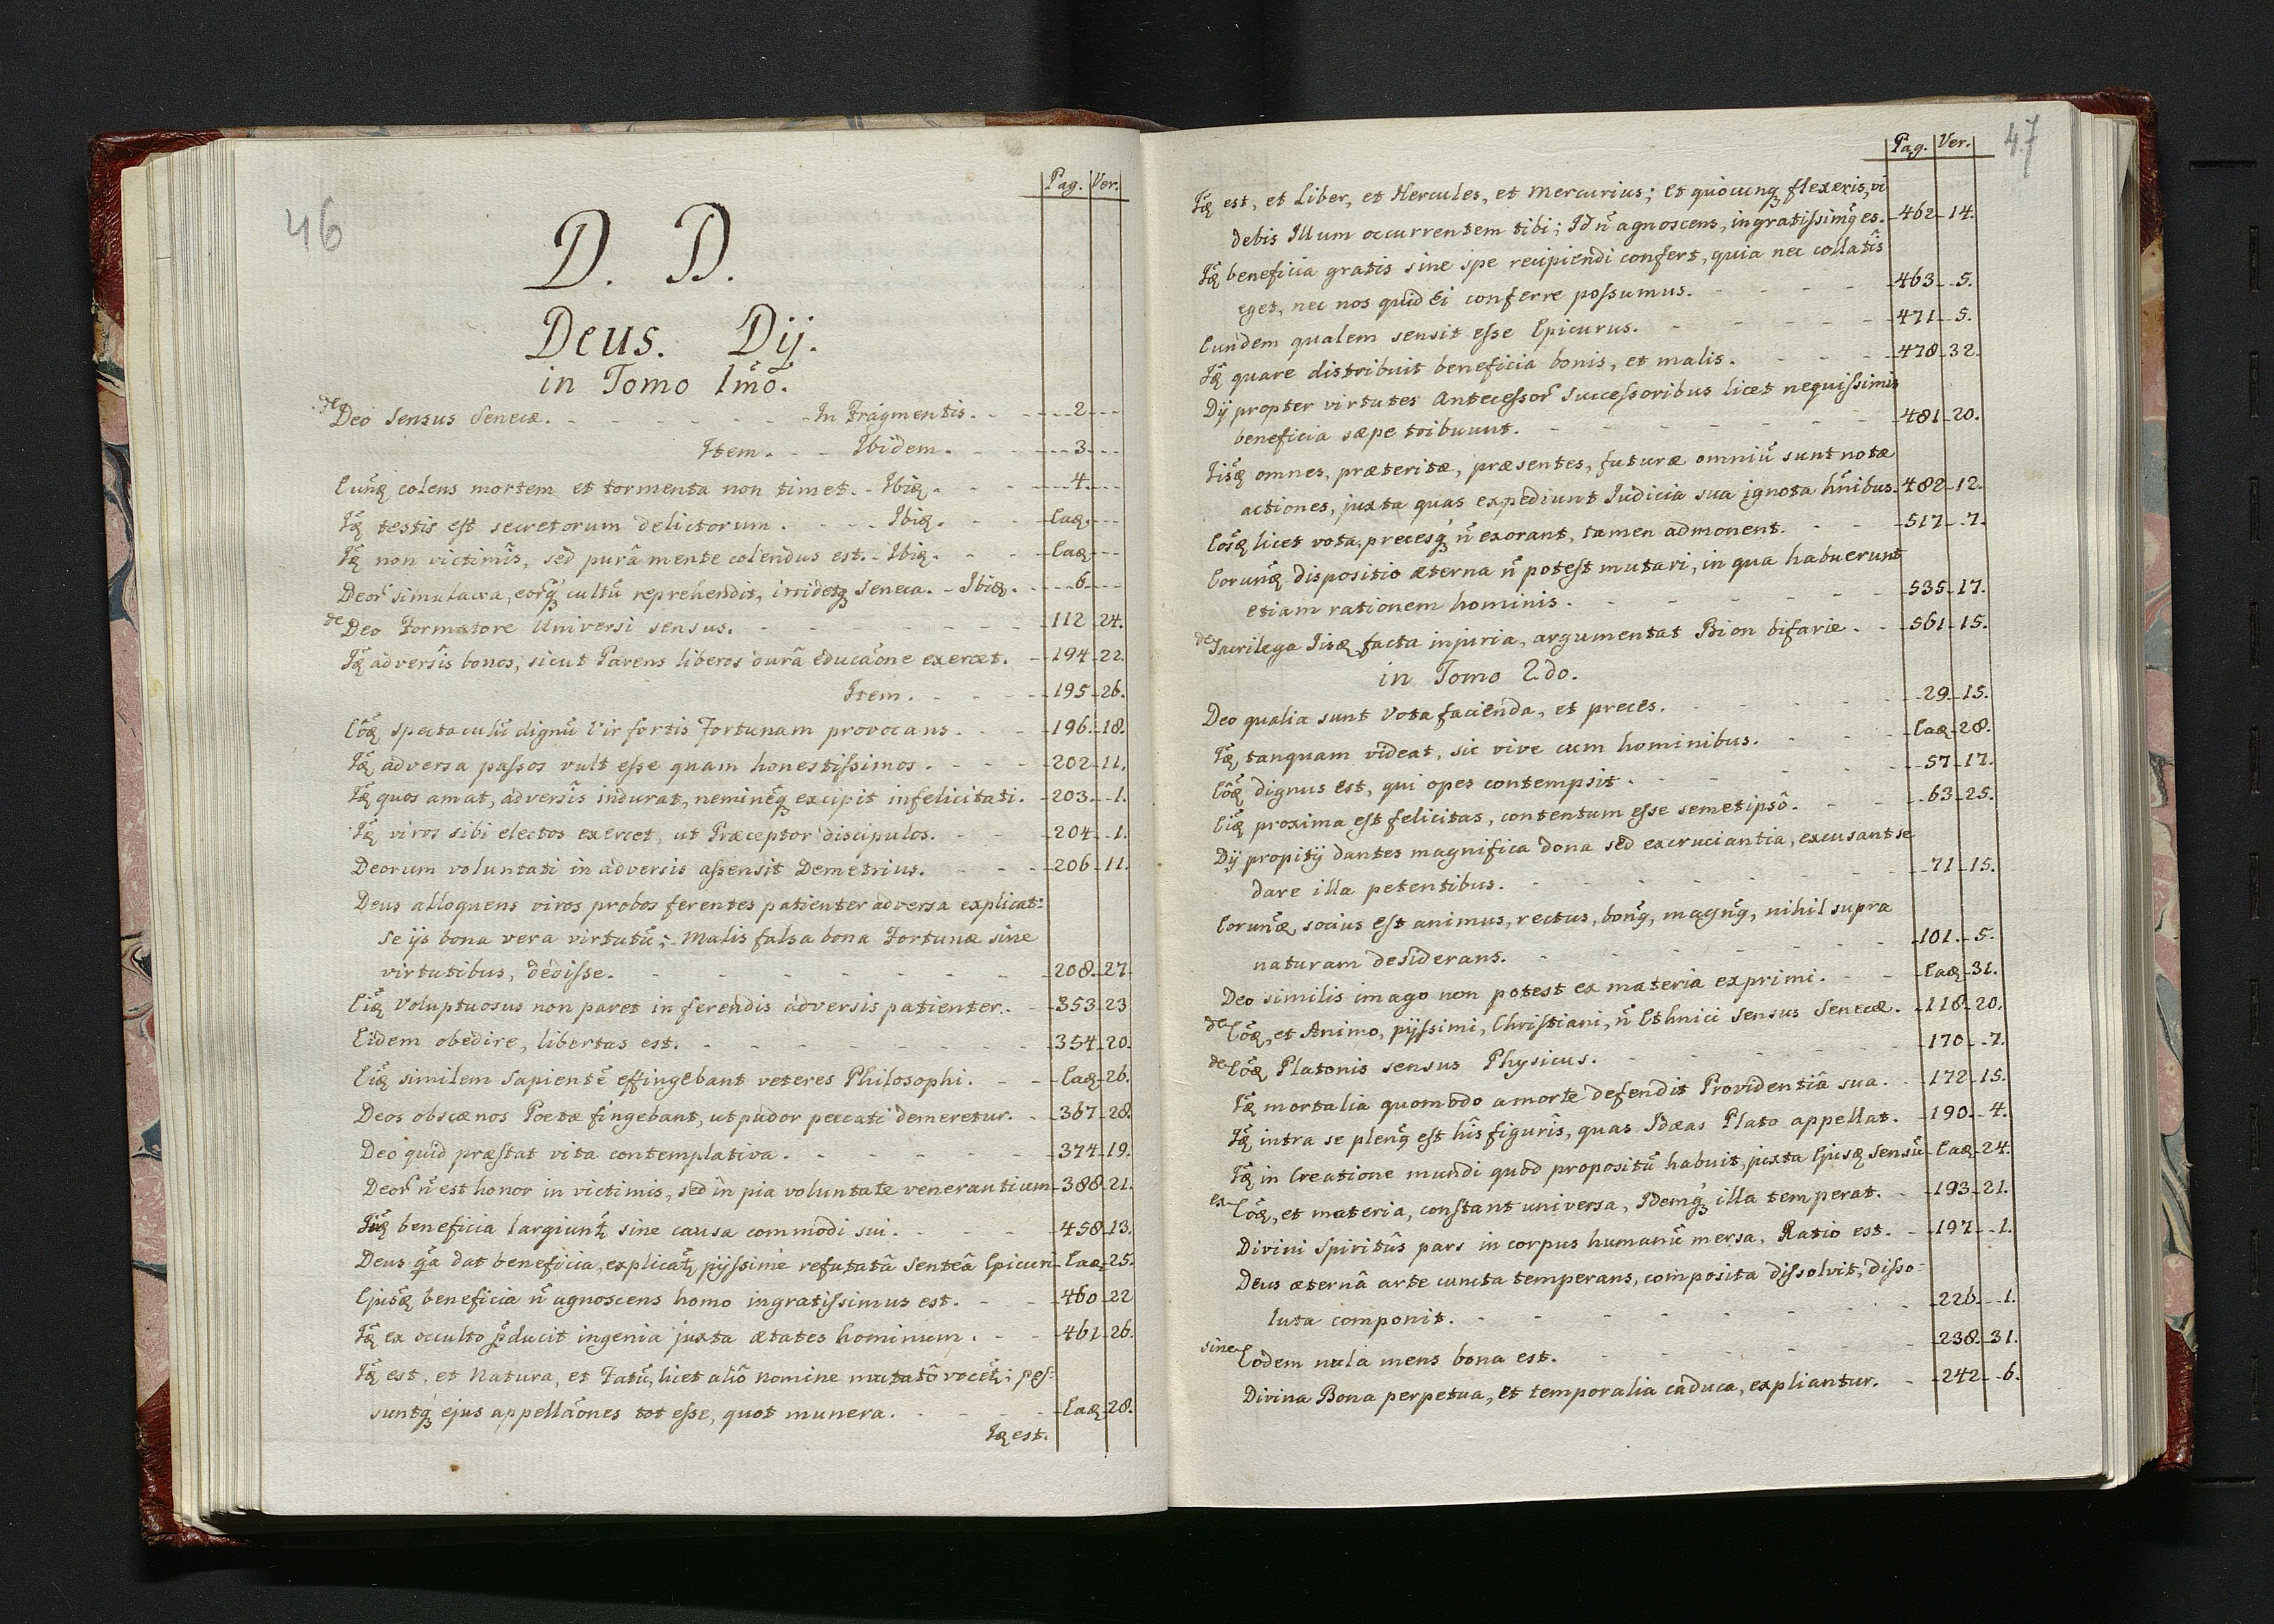 46
Pag. Ver.
D. D.
Deus. Dij.
in Tomo 1mõ.
de Deo Sensus Senecæ. - In Fragmentis. - 2
Item. - Ibidem. - 3
Eunq̃ colens mortem et tormenta non timet. - Ibiq. - 4.
Iq̃ testis est secretorum delictorum. - Ibiq. - Eaq.
Iq̃ non victimîs, sed purâ mente colendus est. - Ibiq. - Eaq
Deor̃ simulacra, eorq́ʒ cultũ reprehendit, irridetqʒ Seneca. - Ibiq. - 6
de Deo Formatore Universi sensus. - 112 - 24.
Iq̃ adversîs bonos, sicut Parens liberos durâ educaõne exercet. - 194 - 22.
Item. - 195 - 26.
Eôq̃ spectaculũ dignũ Vir fortis Fortunam provocans. - 196. - 18.
Iq̃ adversa passos vult esse quam honestissimos. - 202 - 11.
Iq̃ quos amat, adversîs indurat, neminẽqʒ excipit infelicitati. - 203. - 1.
Iq̃ viros sibi electos exercet, ut Præceptor discipulos. - 204 - 1.
Deorum voluntati in adversis assensit Demetrius. - 206 - 11.
Deus alloquens viros probos ferentes patienter adversa explicat:
se ijs bona vera virtutũ; Malis falsa bona Fortunæ sine
virtutibus, dedisse. - 208. - 27
Eiq̃ Voluptuosus non paret in ferendis adversis patienter. - 353 - 23
Eidem obedire, libertas est. - 354 - 20.
Eiq̃ similem sapientẽ effingebant veteres Philosophi. - Eaq - 26.
Deos obscænos Poetæ fingebant, ut pudor peccati demeretur. - 367 - 28.
Deo quid præstat vita contemplativa. - 374 - 19.
Deor̃ ñ est honor in victimis, sed in pia voluntate venerantium - 388 - 21.
Iiq̃ beneficia largiunt̃ sine causa commodi sui. - 458 - 13.
Deus q̃a dat beneficia, explicat̃, pijssimè refutatâ senteâ Epicuri - Eaq - 25.
Ejusq̃ beneficia ñ agnoscens homo ingratissimus est. - 460 - 22
Iq̃ ex occulto p̃ducit ingenia juxta ætates hominum. - 461 - 26.
Iq̃ est, et Natura, et Fatũ, licet aliô nomine mutatô vocet̃; pos-
suntqʒ ejus appellaõnes tot esse, quot munera. - Eaq - 28.
Iq est.
47
Pag. Ver.
Iq̃ est, et Liber, et Hercules, et Mercurius; et quòcunqʒ flexeris, vi
debis Illum occurrentem tibi; Id ñ agnoscens, ingratissimq̃ es. - 462 - 14.
Iq̃ beneficia gratis sine spe recipiendi confert, quia nec collatîs
eget, nec nos quid Ei conferre possumus. - 463 - 5.
Eundem qualem sensit esse Epicurus. - 471 - 5.
Iq̃ quare distribuit beneficia bonis, et malis. - 478 - 32.
Dij propter virtutes Antecessor̃ Successoribus licet nequissimis
beneficia sæpe tribuunt. - 481 - 20.
Iisq̃ omnes, præteritæ, præsentes, futuræ omniũ sunt notæ
actiones, juxta quas expediunt Iudicia sua ignota hñibus. - 482 - 12.
Eosq̃ licet vota, precesq́ʒ ñ exorant, tamen admonent. - 517 - 7.
Eorunq̃ dispositio æterna ñ potest mutari, in qua habuerunt
etiam rationem hominis. - 535 - 17.
de Sacrilega Iisq̃ facta injuria, argumentat Bion bifarie. - 561 - 15.
in Tomo 2.do.
Deo qualia sunt Vota facienda, et preces. - 29 - 15.
Iq̃, tanquam videat, sic vive cum hominibus. - Eaq - 28.
Eôq̃ dignus est, qui opes contempsit. - 57 - 17.
Eiq̃ proxima est felicitas, contentum esse semetipsô. - 63 - 25.
Dij propitij dantes magnifica dona sed excruciantia, excusant se
dare illa petentibus. - 71 - 15.
Eorunq̃, socius est animus, rectus, bonq̃, magnq̃, nihil supra
naturam desiderans. - 101. - 5.
Deo similis imago non potest ex materia exprimi. - Eaq - 31.
de Eôq̃, et Animo, pijssimi, Christiani, ñ Ethnici Sensus Senecæ. - 118 - 20.
de Eôq̃ Platonis sensus Physicus. - 170 - 7.
Iq̃ mortalia quomodo a morte defendit Providentiâ sua. - 172 - 15.
Iq̃ intra se plenq̃ est hîs figurîs, quas Idæas Plato appellat. - 190 - 4.
Iq̃ in Creatione mundi quod propositũ habuit, juxta Ejusq̃ sensũ - Eaq - 24.
ex Eôq̃, et materia, constant universa, Idemq́ʒ illa temperat. - 193 - 21.
Divini Spiritûs pars in corpus humanũ mersa, Ratio est. - 197 - 1.
Deus æternâ arte cuncta temperans, composita dissolvit, disso-
luta componit. - 226. - 1.
sine Eodem nula mens bona est. - 238. - 31.
Divina Bona perpetua, et temporalia caduca, expliantur. - 242 - 6.